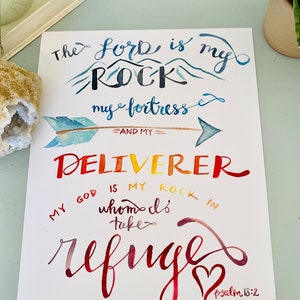 The Lord is my
ROCK
my fortress
AND MY
DELIVERER
MY GOD IS MY ROCK IN
whom I
take
refuge
psalm 18:2